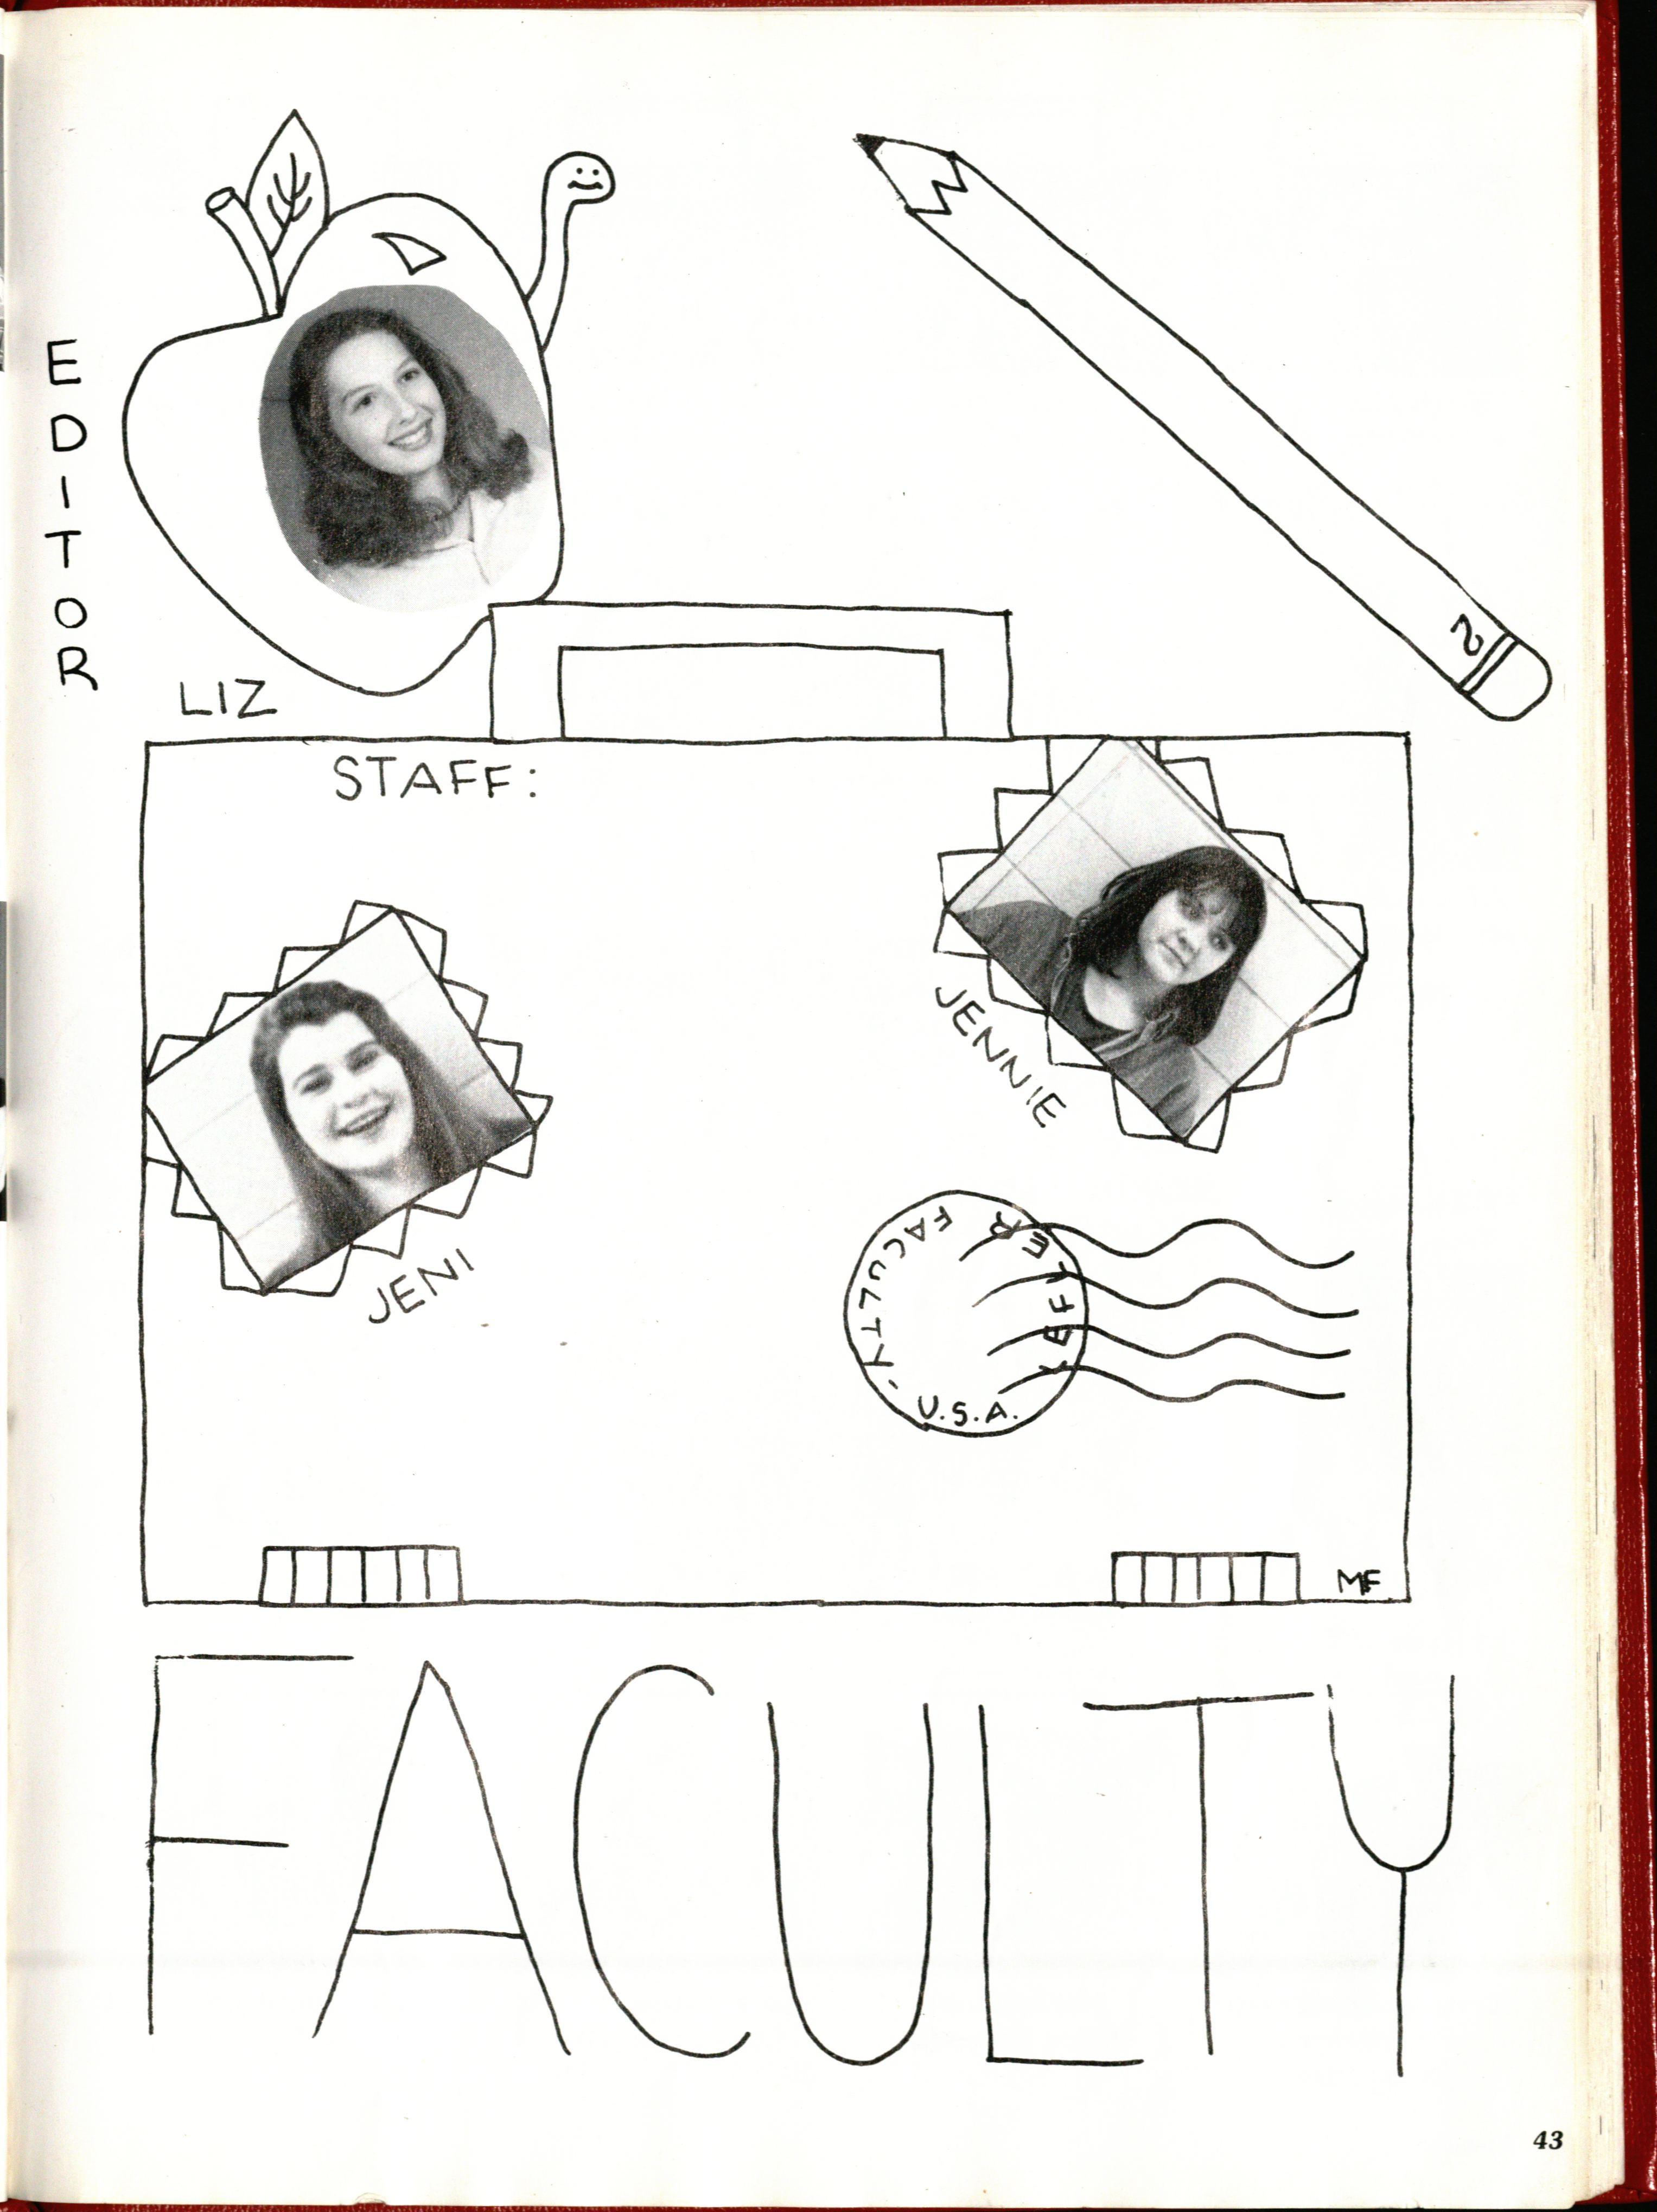 EDITOR
LIZ
2
STAFF:
JENNIE
JENI
FACULTY-
U.S.A.
MF
FACULTY
43